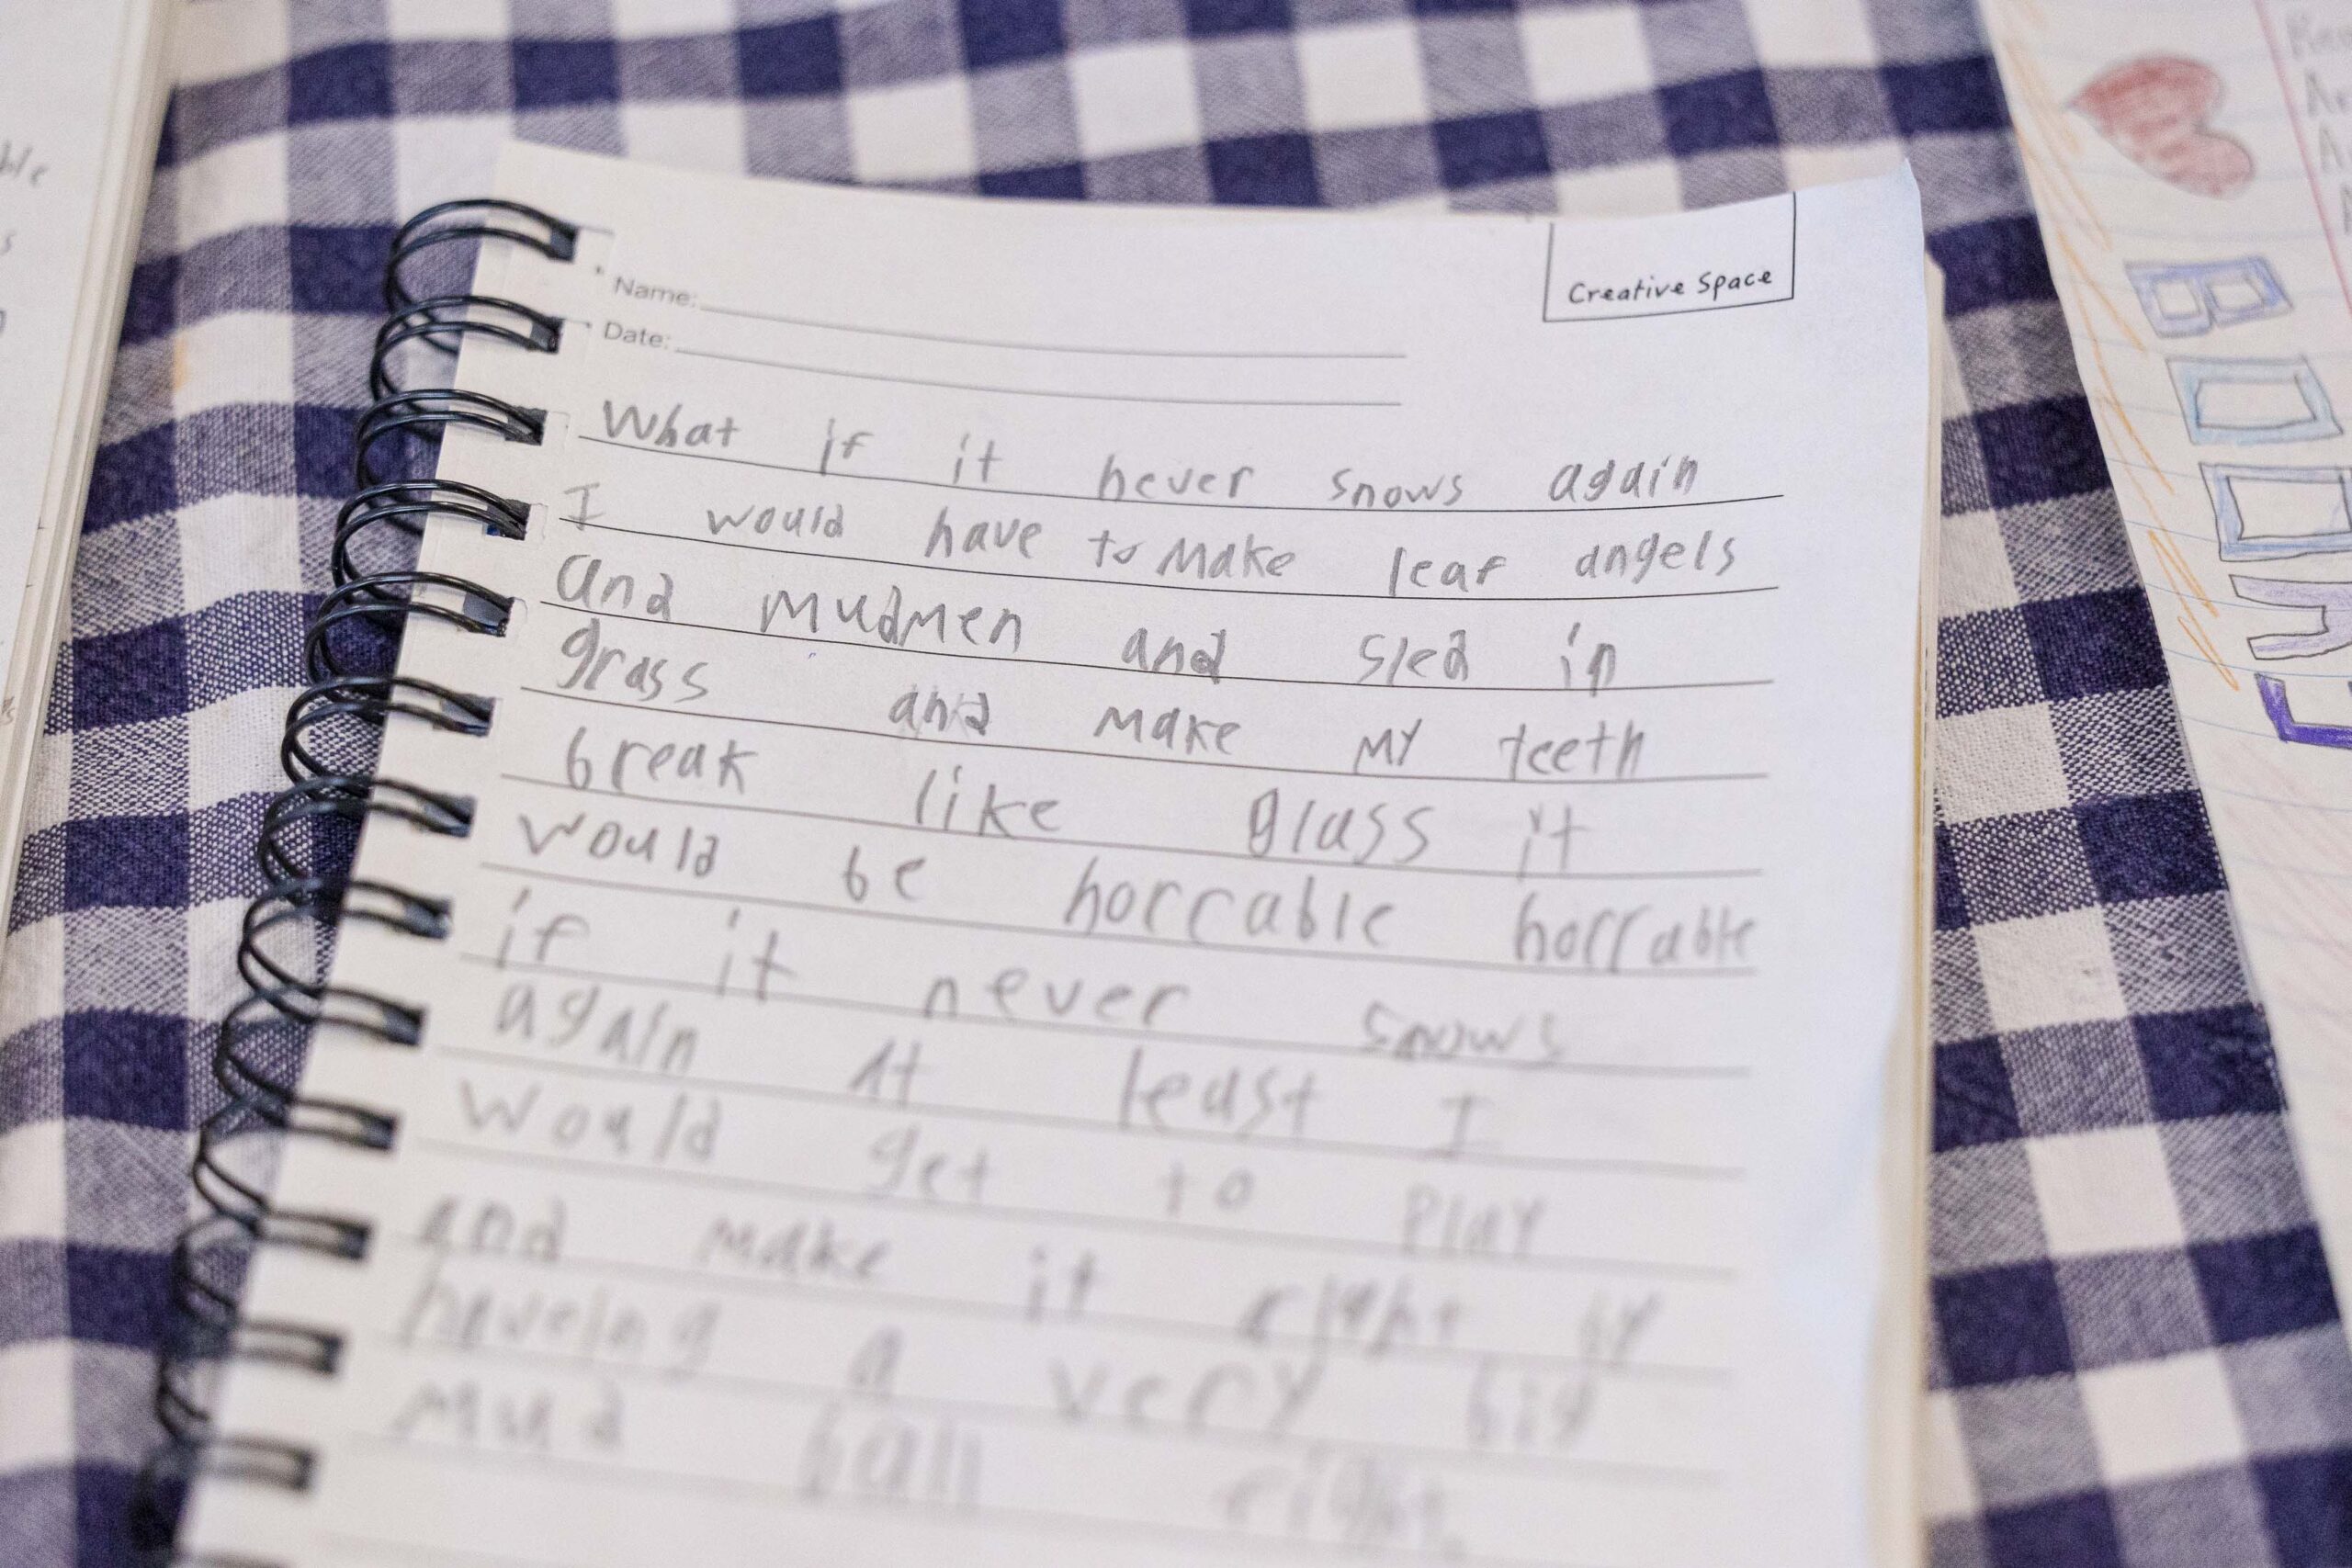 Name:
Date:
Creative Space
What if it never snows again
I would have to Make leaf angels
and mudmen and sled in
grass and make my teeth
break like glass it
would be horrable horrable
if it never snows
again At least I
would get to Play
and make it right
haveing a very big
mud ball right